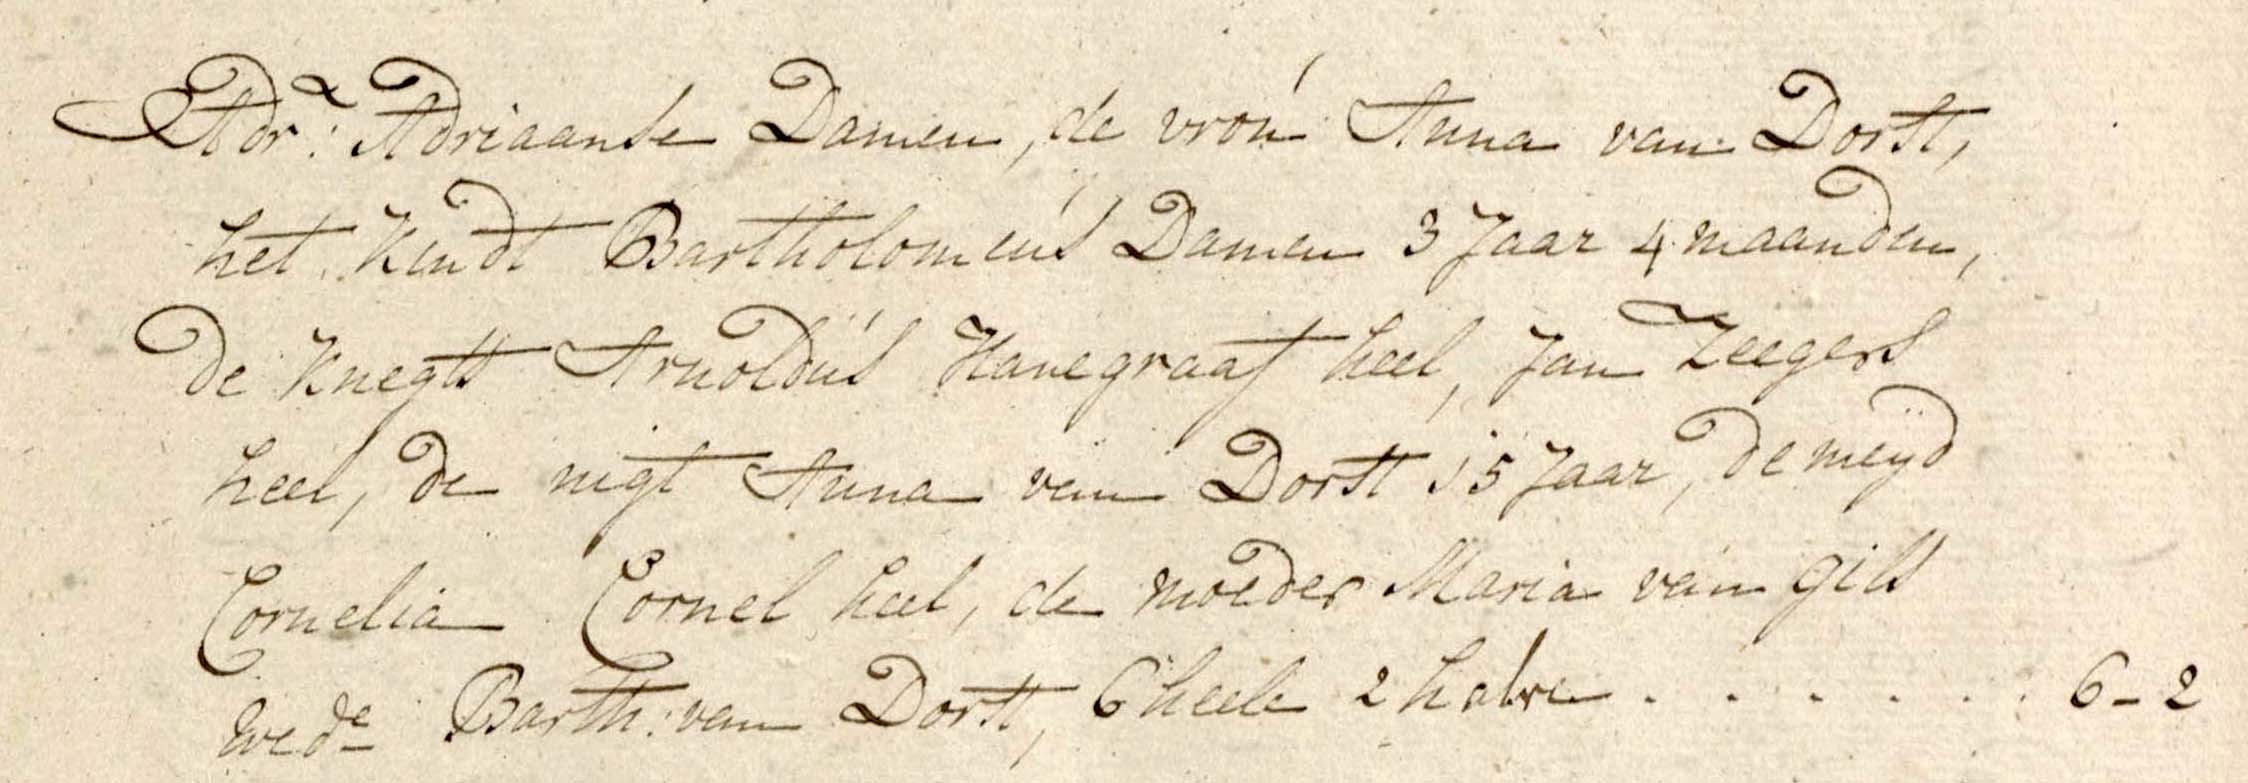 Adr:ⁿ Adriaanse Damen, de vrou Anna van Dorst,
het Kindt Bartholomeus Damen 3 Jaar 4 maanden,
De Knegts Arnoldus Hanegraaf heel, Jan Zeegers
heel, de nigt Anna van Dorst 15 Jaar, de meijd
Cornelia Cornel heel, de moeder Maria van Gils
wede Barth: van Dorst, 6 heele 2 halve . . . . . . 6-2